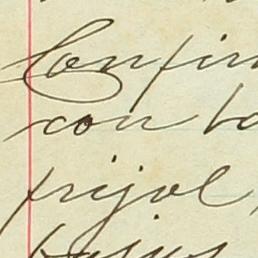 Confir
con ta
frijol,